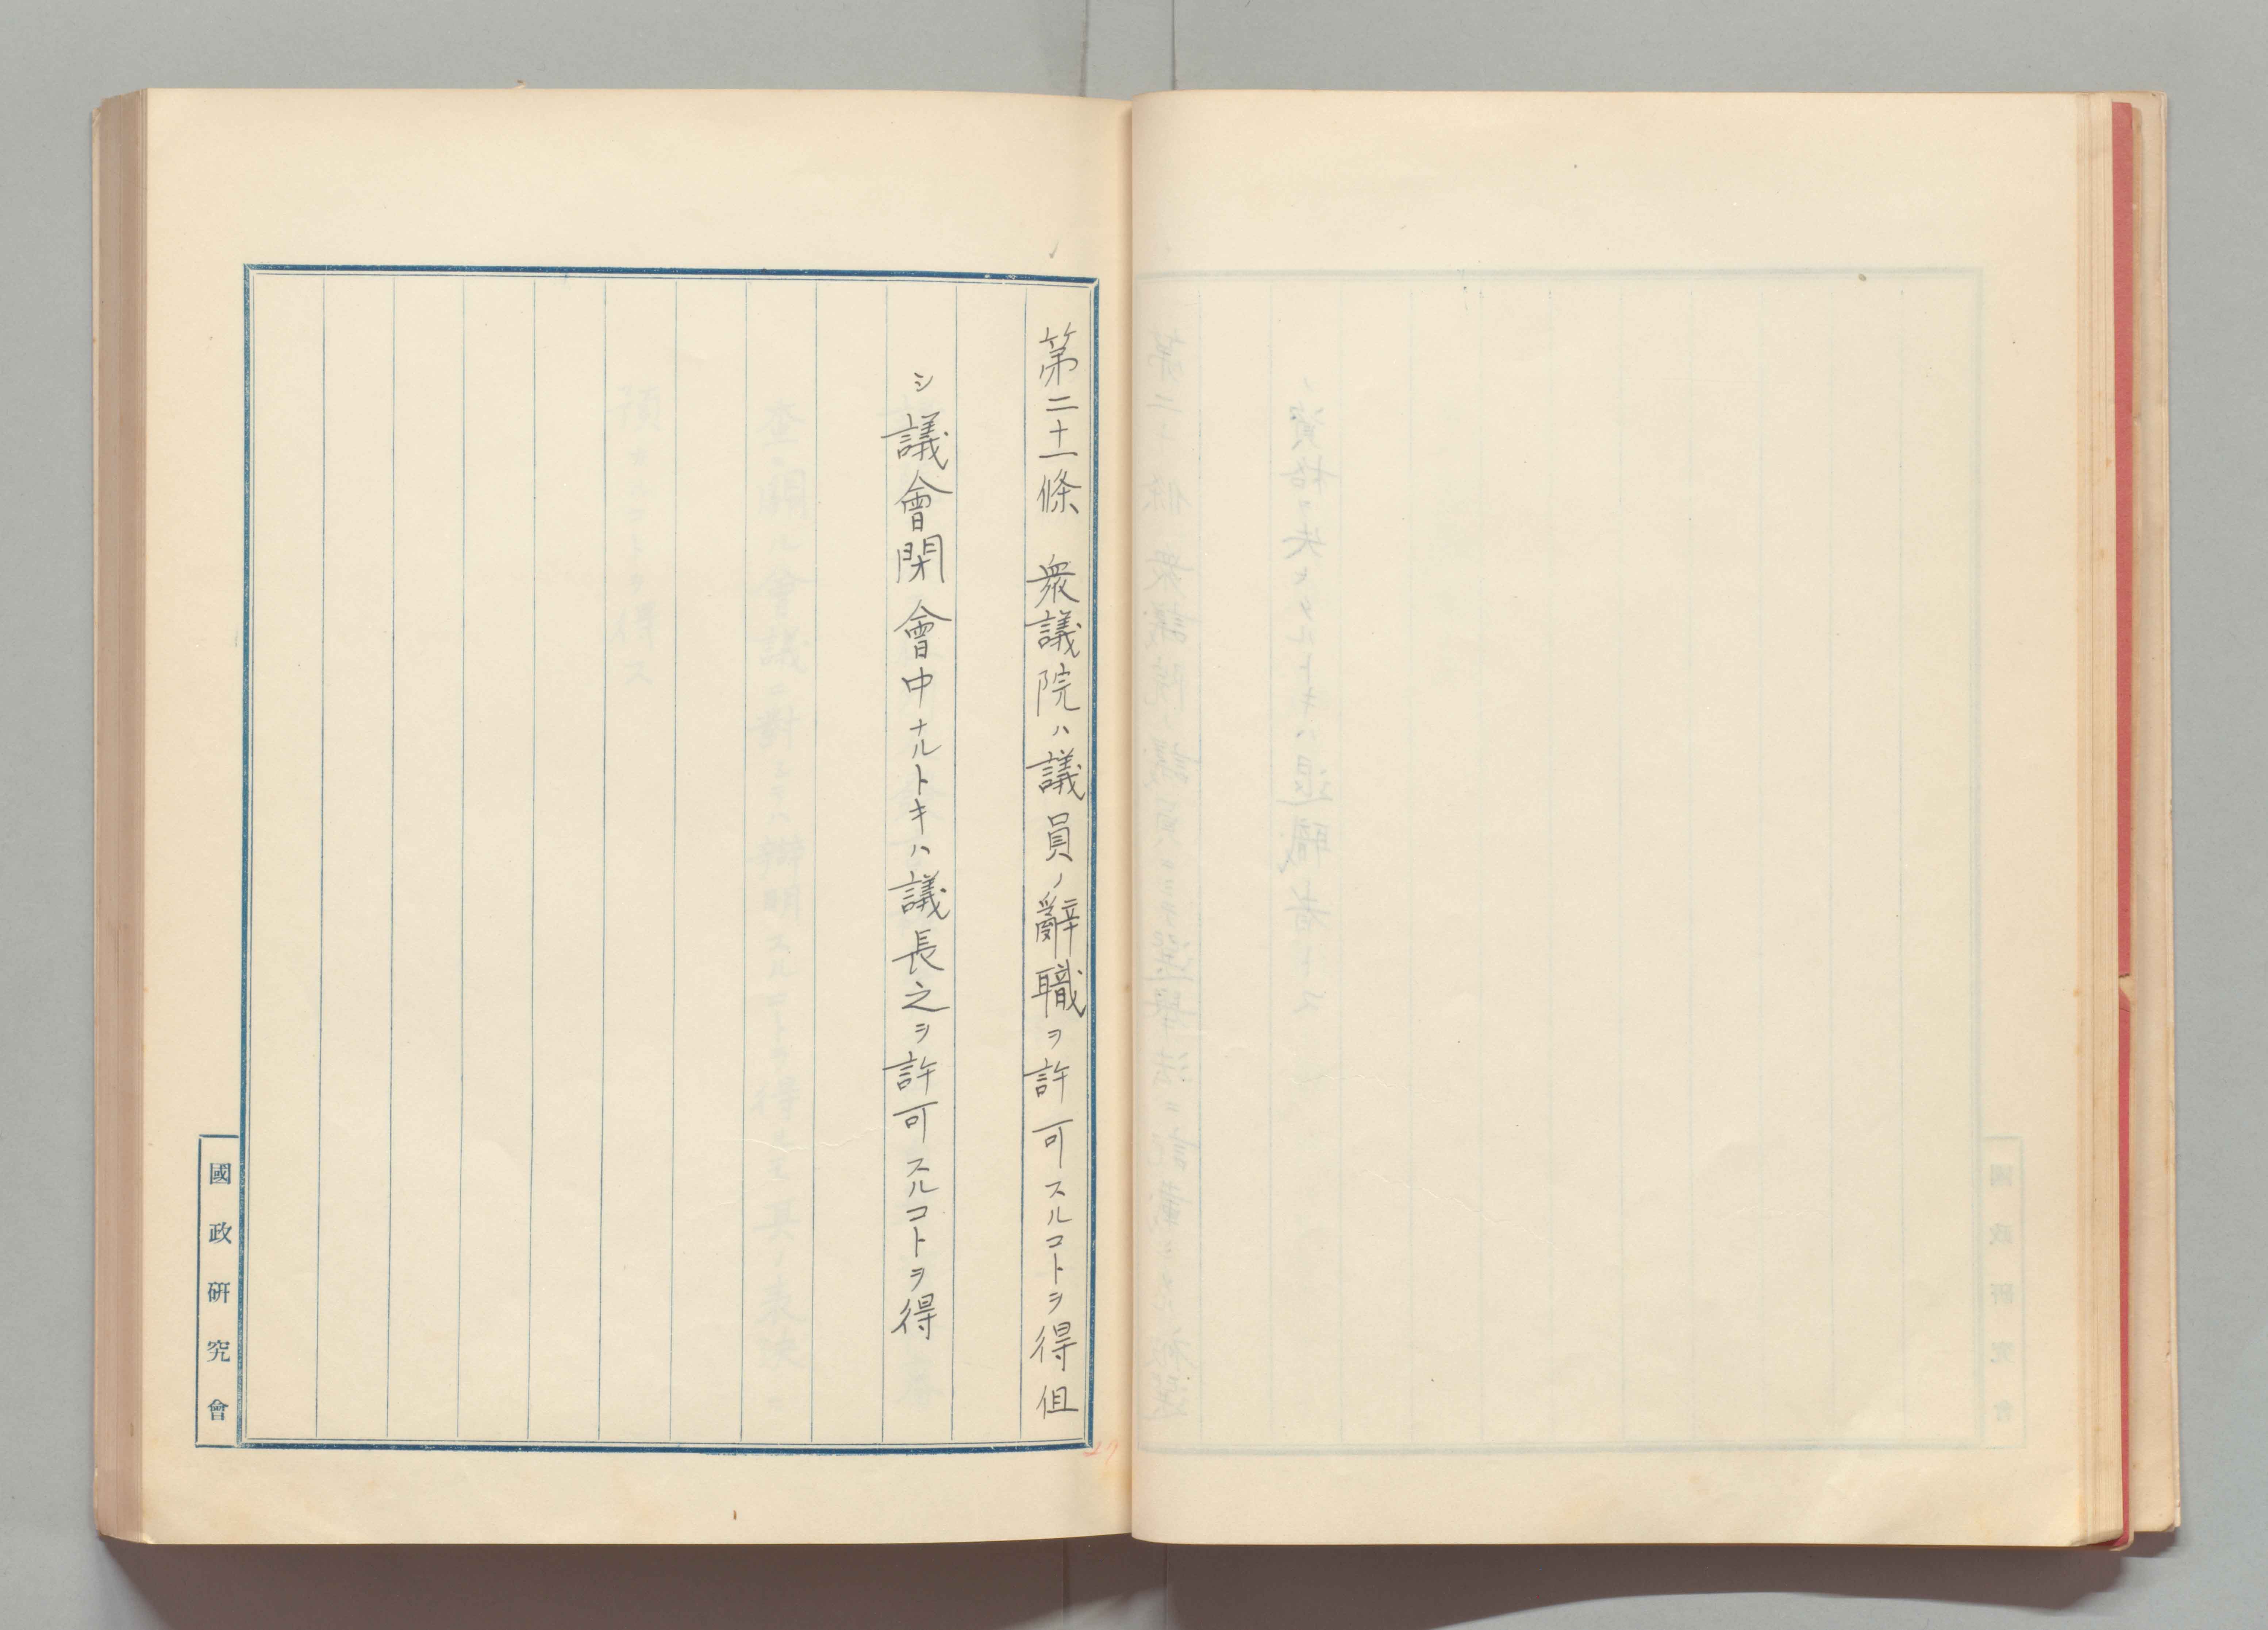 第二十一條　衆議院ハ議員ノ辭職ヲ許可スルコトヲ得但
シ議會閉會中ナルトキハ議長之ヲ許可スルコトヲ得
國政研究會